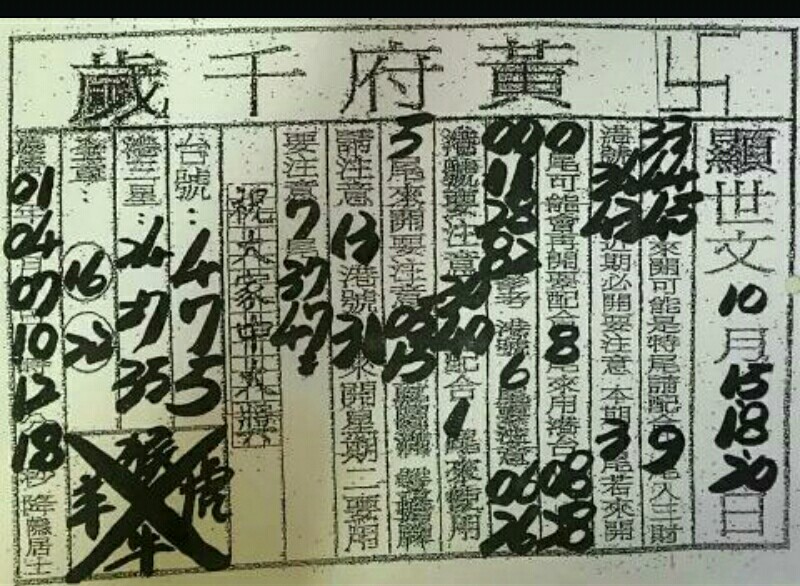 卍黃府千歲
顯世文10月15 18 20日
33 44 45 來開可能是特尾請配9尾入三財
港號 43 近期必開要注意 本期3尾若來開
0尾可能會再開要配合8尾來用港台08 28
00 11 28 82 參考 港號6尾要注意06 26
港號要注意30 40配合1尾來使用
5尾來開要注意05 15
請注意13港號31來開星期二要用
要注意7尾37 47
祝大家中大獎
台號：4 7 5
港三星：24 27 35
16 22
01 04 07 10 12 18 秒 降隱居士
猴 虎 牛 羊